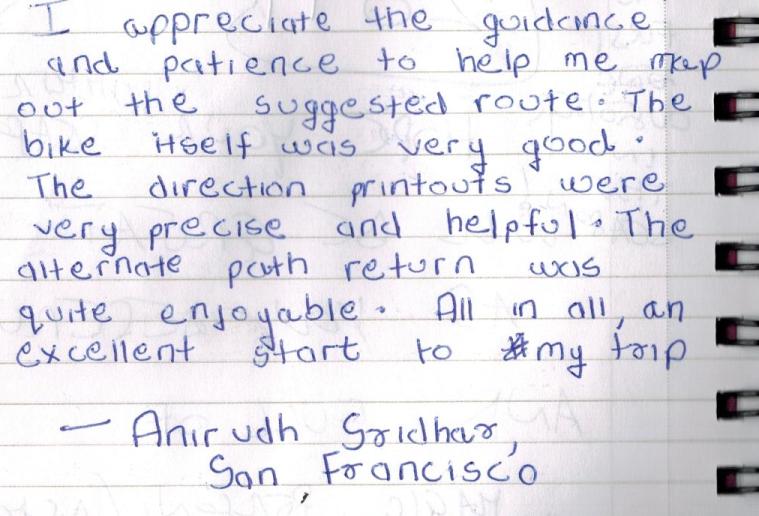 I appreciate the guidance
and patience to help me map
out the suggested route. The
bike itself was very good.
The direction printouts were
very precise and helpful. The
alternate path return was
quite enjoyable. All in all, an
excellent start to my trip
— Anirudh Sridhar,
San Francisco